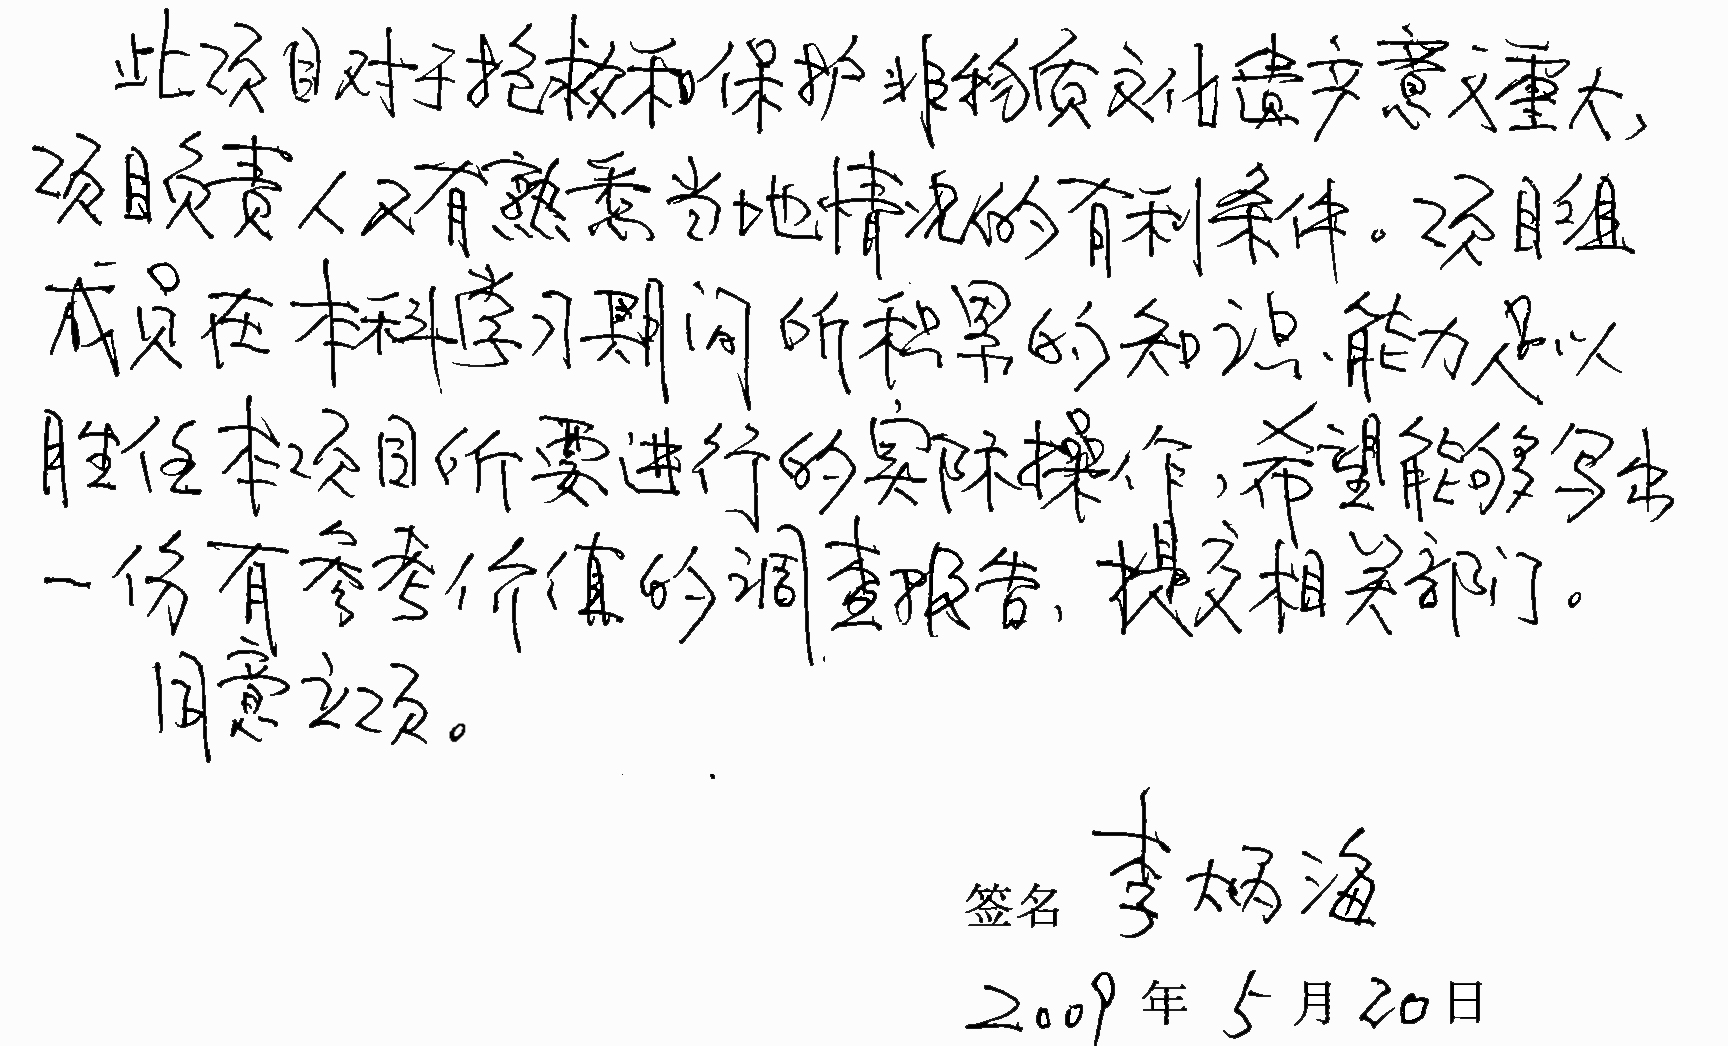 此项目对于抢救和保护非物质文化遗产意义重大,
项目负责人又有熟悉当地情况的有利条件。项目组
成员在本科学习期间所积累的知识、能力足以
胜任本项目所要进行的实际操作,希望能够写出
一份有参考价值的调查报告,提交相关部门。
同意立项。
签名 李炳海
2009年5月20日